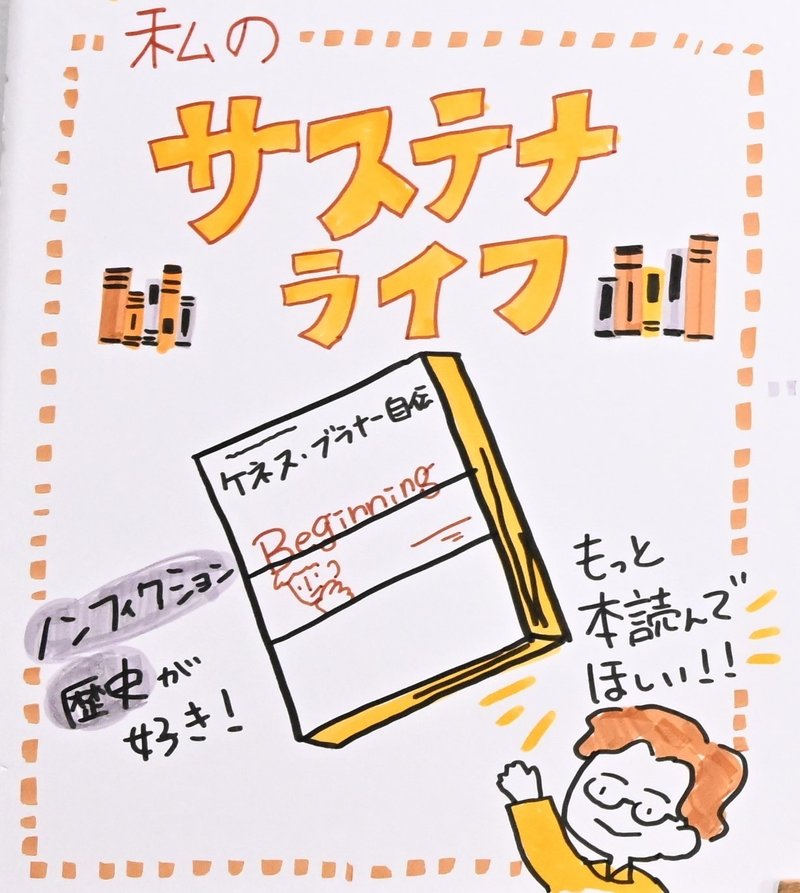 私の
サステナ
ライフ
ケネス・ブラナー自伝
Beginning
ノンフィクション
歴史が
好き!
もっと
本読んで
ほしい!!